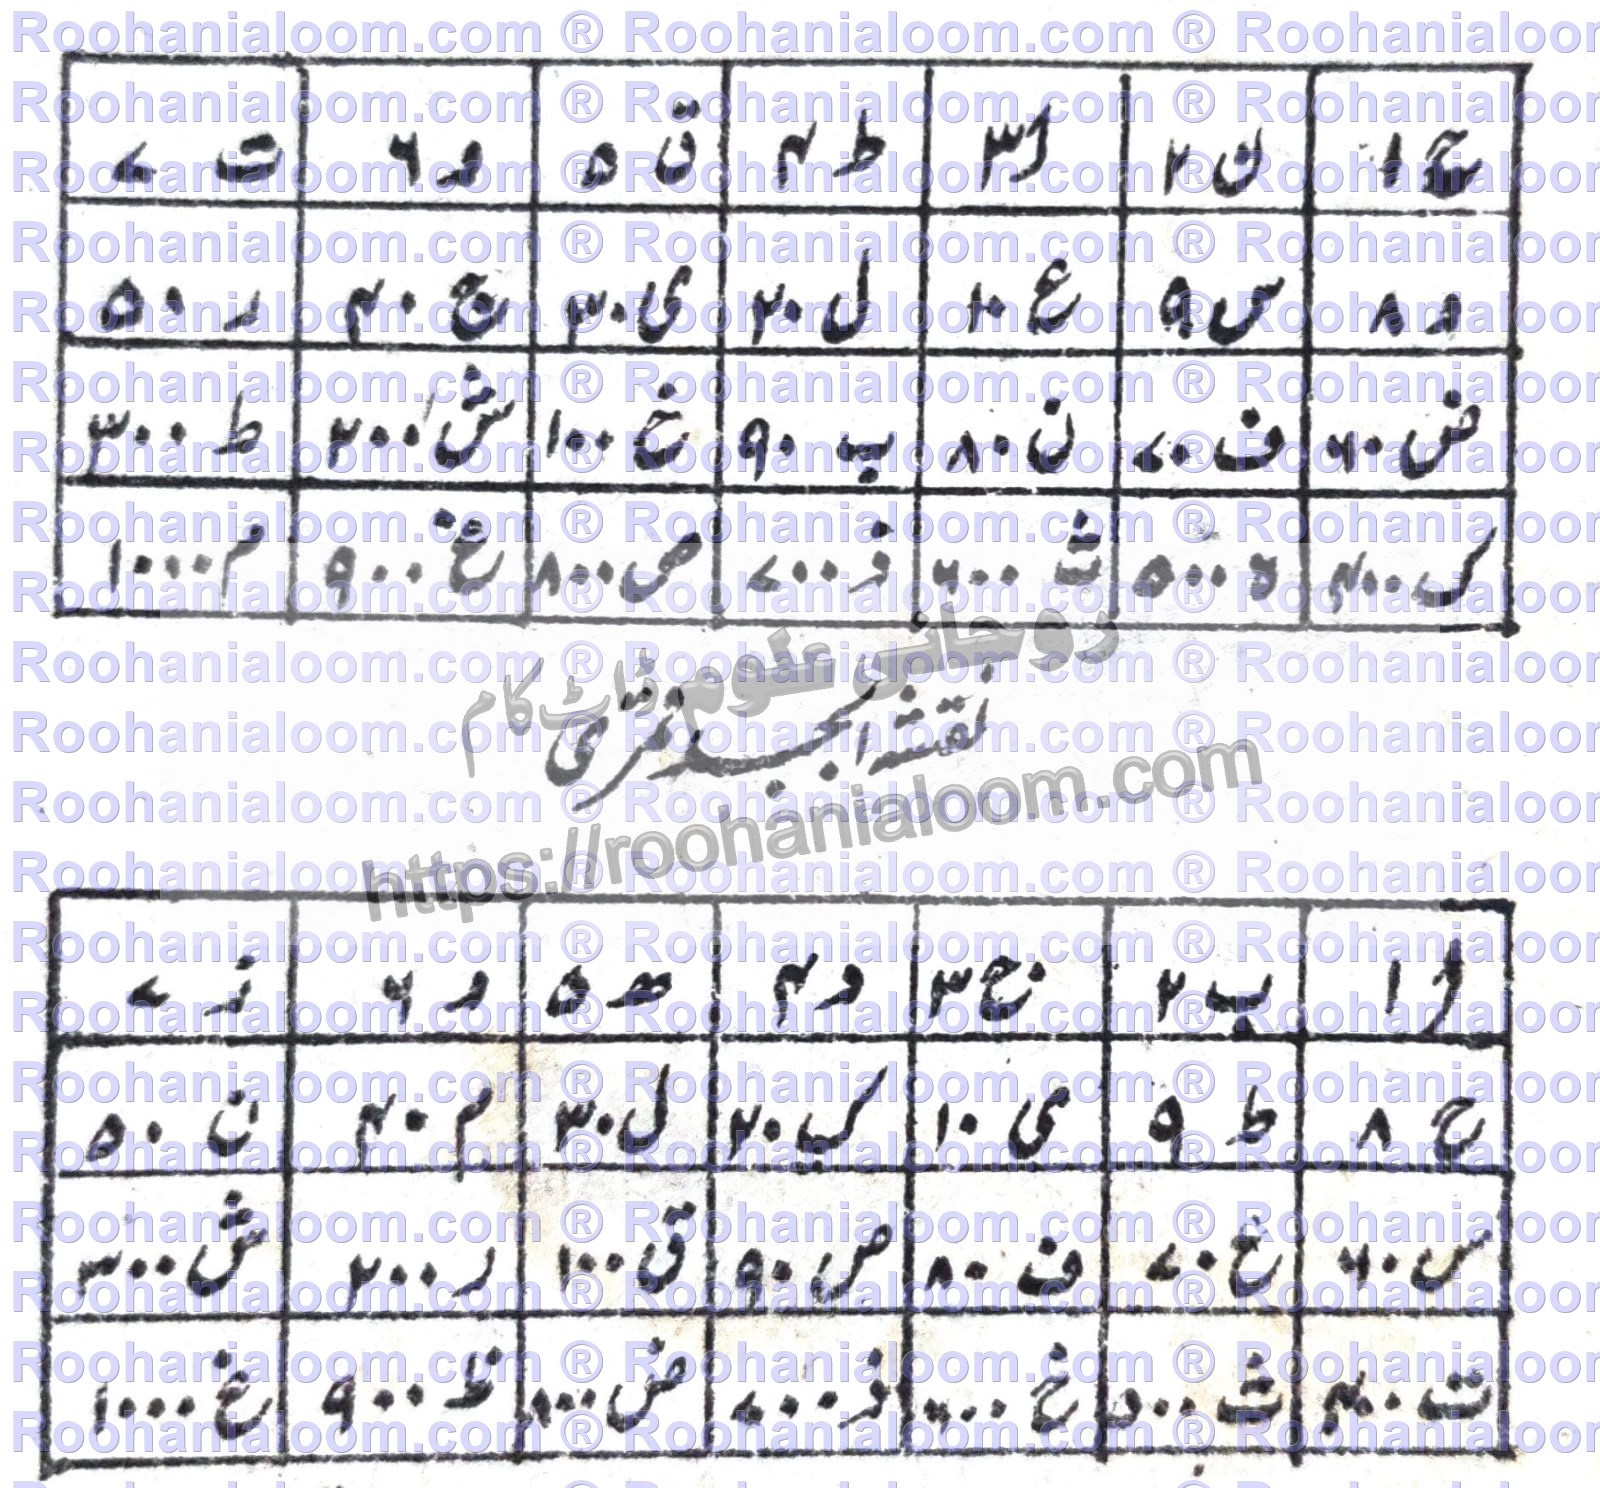 Roohanialoom.com ® Roohanialoom.com ® Roohanialoom
ح ۱ ۲ ا ۳ ط ۴ ق ۵ ۶ ت ۷
و ۸ س ۹ ع ۱۰ ل ۲۰ ی ۳۰ ج ۴۰ ر ۵۰
ض ۶۰ ف ۷۰ ن ۸۰ ب ۹۰ خ ۱۰۰ ش ۲۰۰ ط ۳۰۰
ک ۴۰۰ ۵۰۰ ث ۶۰۰ ذ ۷۰۰ ص ۸۰۰ غ ۹۰۰ م ۱۰۰۰
روحانی علوم ڈاٹ کام
نقشہ ابجد قمری
https://roohanialoom.com
ا ۱ ب ۲ ج ۳ د ۴ ھ ۵ و ۶ ز ۷
ح ۸ ط ۹ ی ۱۰ ک ۲۰ ل ۳۰ م ۴۰ ن ۵۰
س ۶۰ ع ۷۰ ف ۸۰ ص ۹۰ ق ۱۰۰ ر ۲۰۰ ش ۳۰۰
ت ۴۰۰ ث ۵۰۰ خ ۶۰۰ ذ ۷۰۰ ض ۸۰۰ ظ ۹۰۰ غ ۱۰۰۰